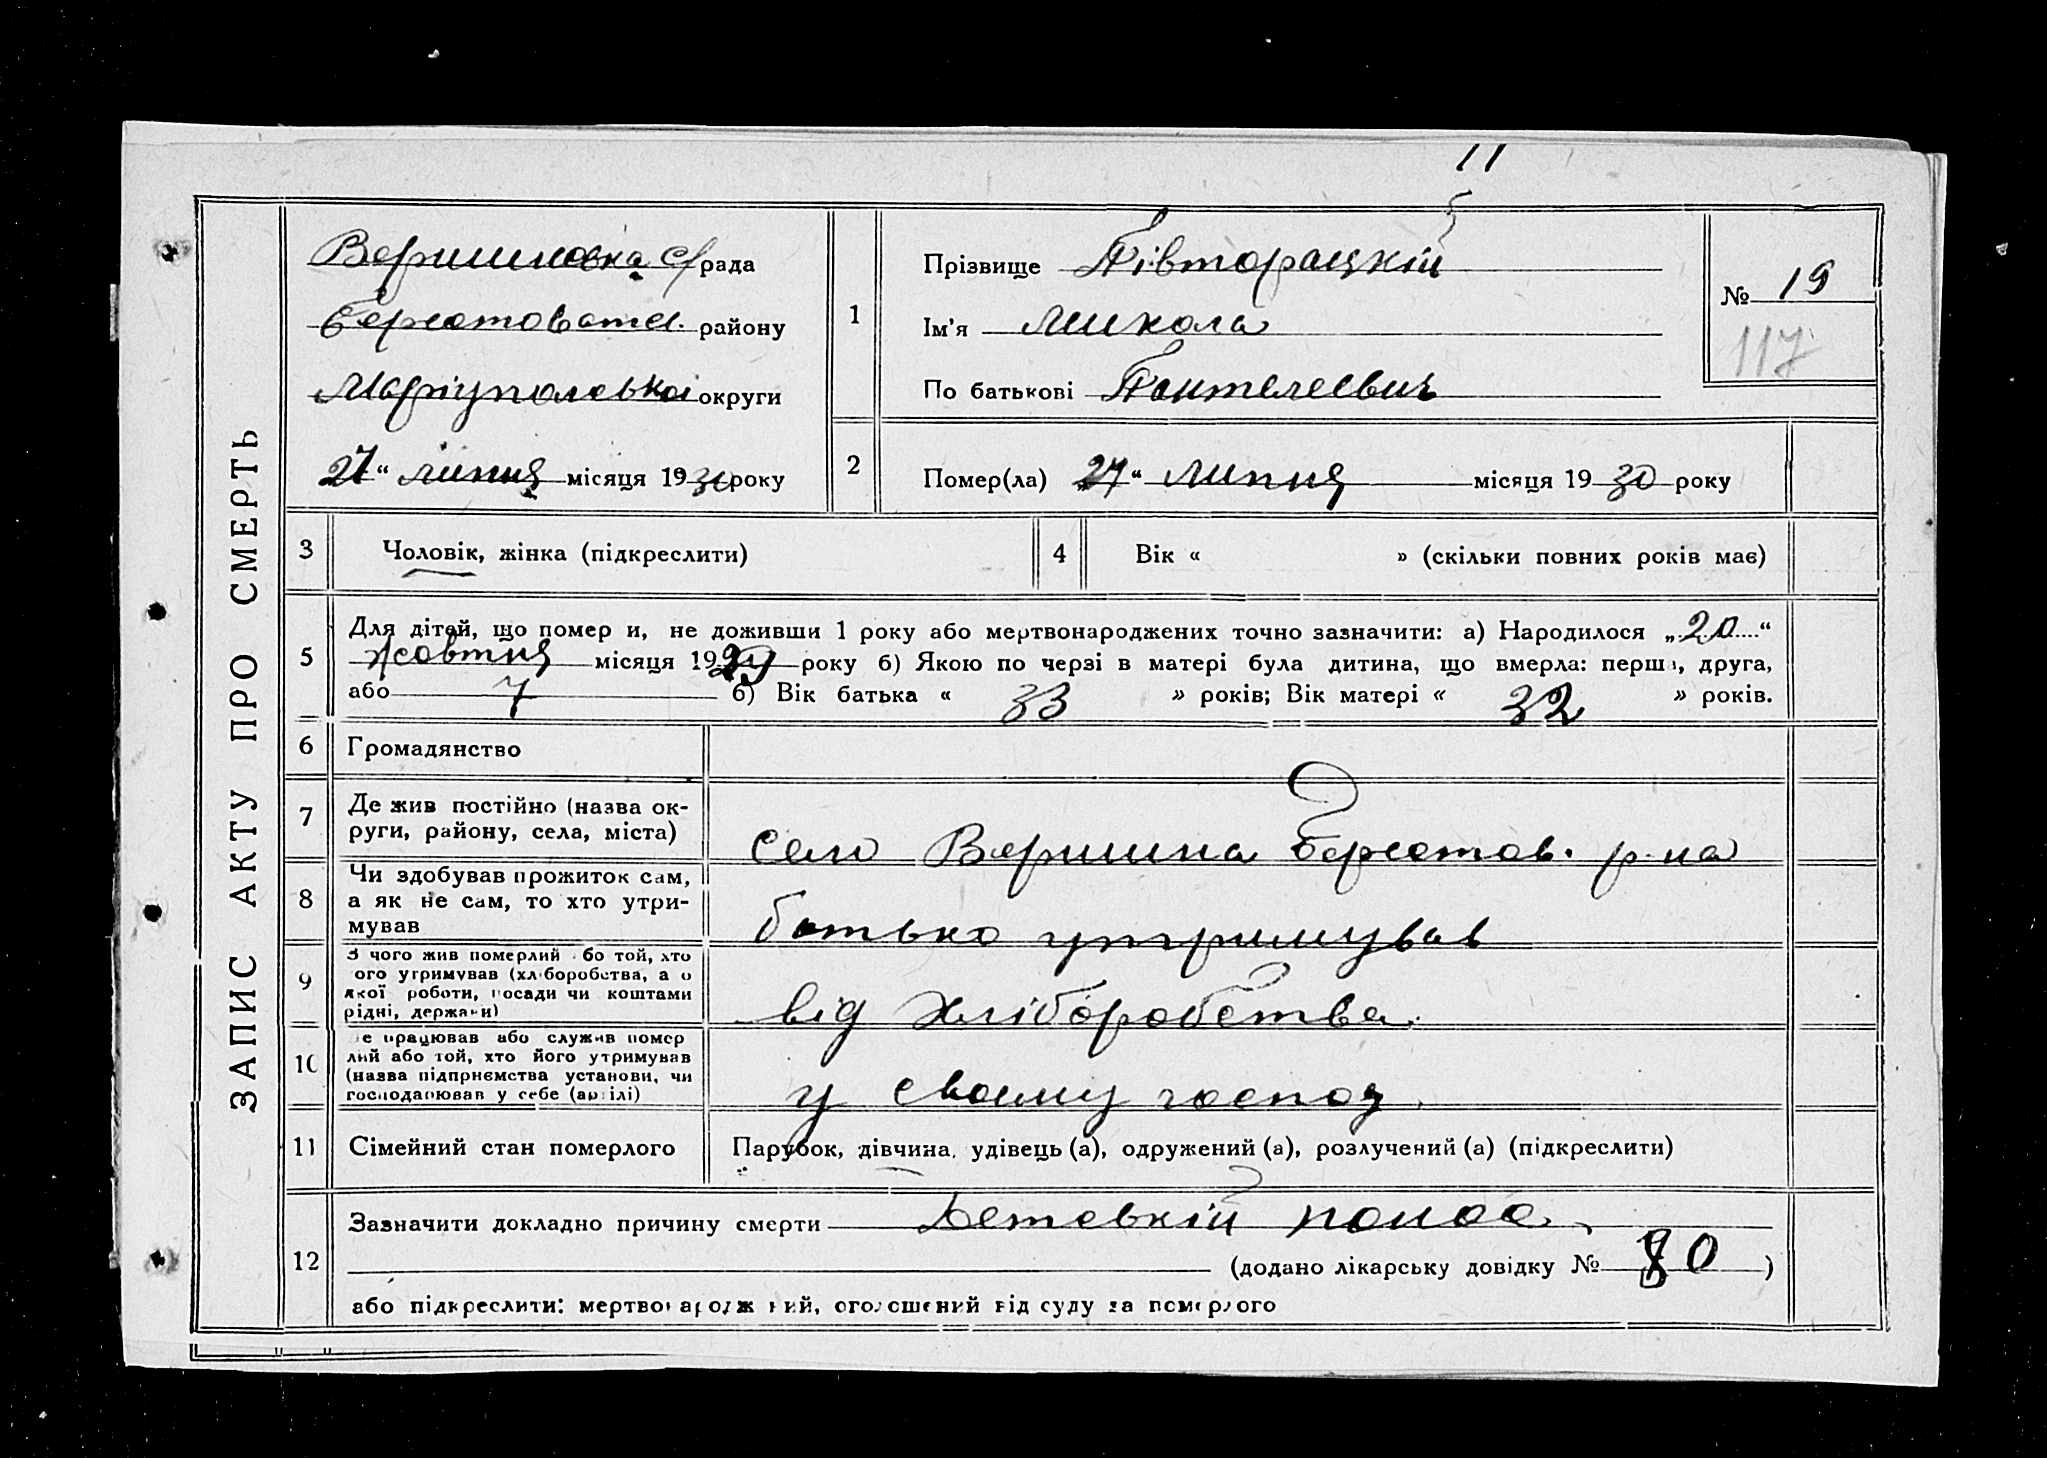 11
ЗАПИС АКТУ ПРО СМЕРТЬ
Вершиновка С/рада
Берестоватськ. району
Маріупольської округи
27 “ липня місяця 1930 року
1
Прізвище Півторацкій
Ім’я Микола
По батькові Пантелеевич
№ 19
117
2
Помер(ла) 27 “ липня місяця 1930 року
3 Чоловік, жінка (підкреслити)
4 Вік « » (скільки повних років має)
5
Для дітей, що помер и, не доживши 1 року або мертвонароджених точно зазначити: а) Народилося „20“
жовтня місяця 1929 року б) Якою по черзі в матері була дитина, що вмерла: перша, друга,
або 7 б) Вік батька « 33 » років; Вік матері « 32 » років.
6 Громадянство
7 Де жив постійно (назва ок-
руги, району, села, міста)
село Вершина Берестов. р-на
8 Чи здобував прожиток сам,
а як не сам, то хто утри-
мував
батько утримував
9 З чого жив померлий або той, хто
ого утримував (хліборобства, а о
якої роботи, посади чи коштами
рідні, держави)
від Хліборобства.
10 е працював або служив помер
лий або той, хто його утримував
(назва підприємства установи, чи
господарював у себе (артілі)
у своему господ
11 Сімейний стан померлого
Парубок, дівчина, удівець (а), одружений (а), розлучений (а) (підкреслити)
12
Зазначити докладно причину смерти Детсвкій понос
(додано лікарську довідку № 80 )
або підкреслити: мертвонароджений, оголошений від суду за померлого